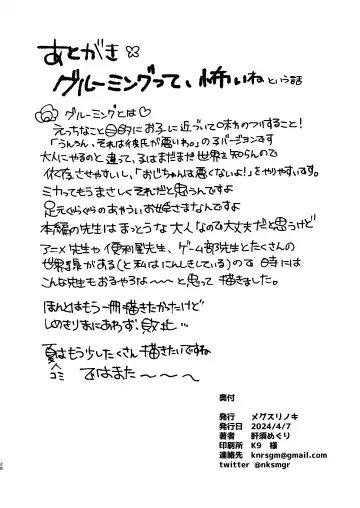 あとがき
グルーミングって、怖いね という話
グルーミングとは♡
えっちなこと目的にお子に近づいて味方のフリすること!
「うんうん、それは彼氏が悪いわ。」の
バージョンです
大人にやるのと違って、
はまだまだ世界を知らんので
依存させやすいし、「おじちゃんは悪くないよ!」をやりやすいです。
ミカってもうまさしくそれだと思うんですよ
足元ぐらぐらのあやういお姫さまなんですよ
本編の先生はまっとうな大人なので大丈夫だと思うけど
アニメ先生や便利屋先生、ゲーム部先生とたくさんの
世界線がある(と私はにんしきしている)ので時には
こんな先生もおるやろな〜〜と思って描きました。
ほんとはもう一冊描きたかったけど
しめきりまにあわず、敗北…
夏コミ
はもう少したくさん描きたいですね
ではまた〜〜〜
奥付
発行 メグスリノキ
発行日 2024/4/7
著者 軒須めぐり
印刷所 K9 様
連絡先 knrsgm@gmail.com
twitter @nksmgr